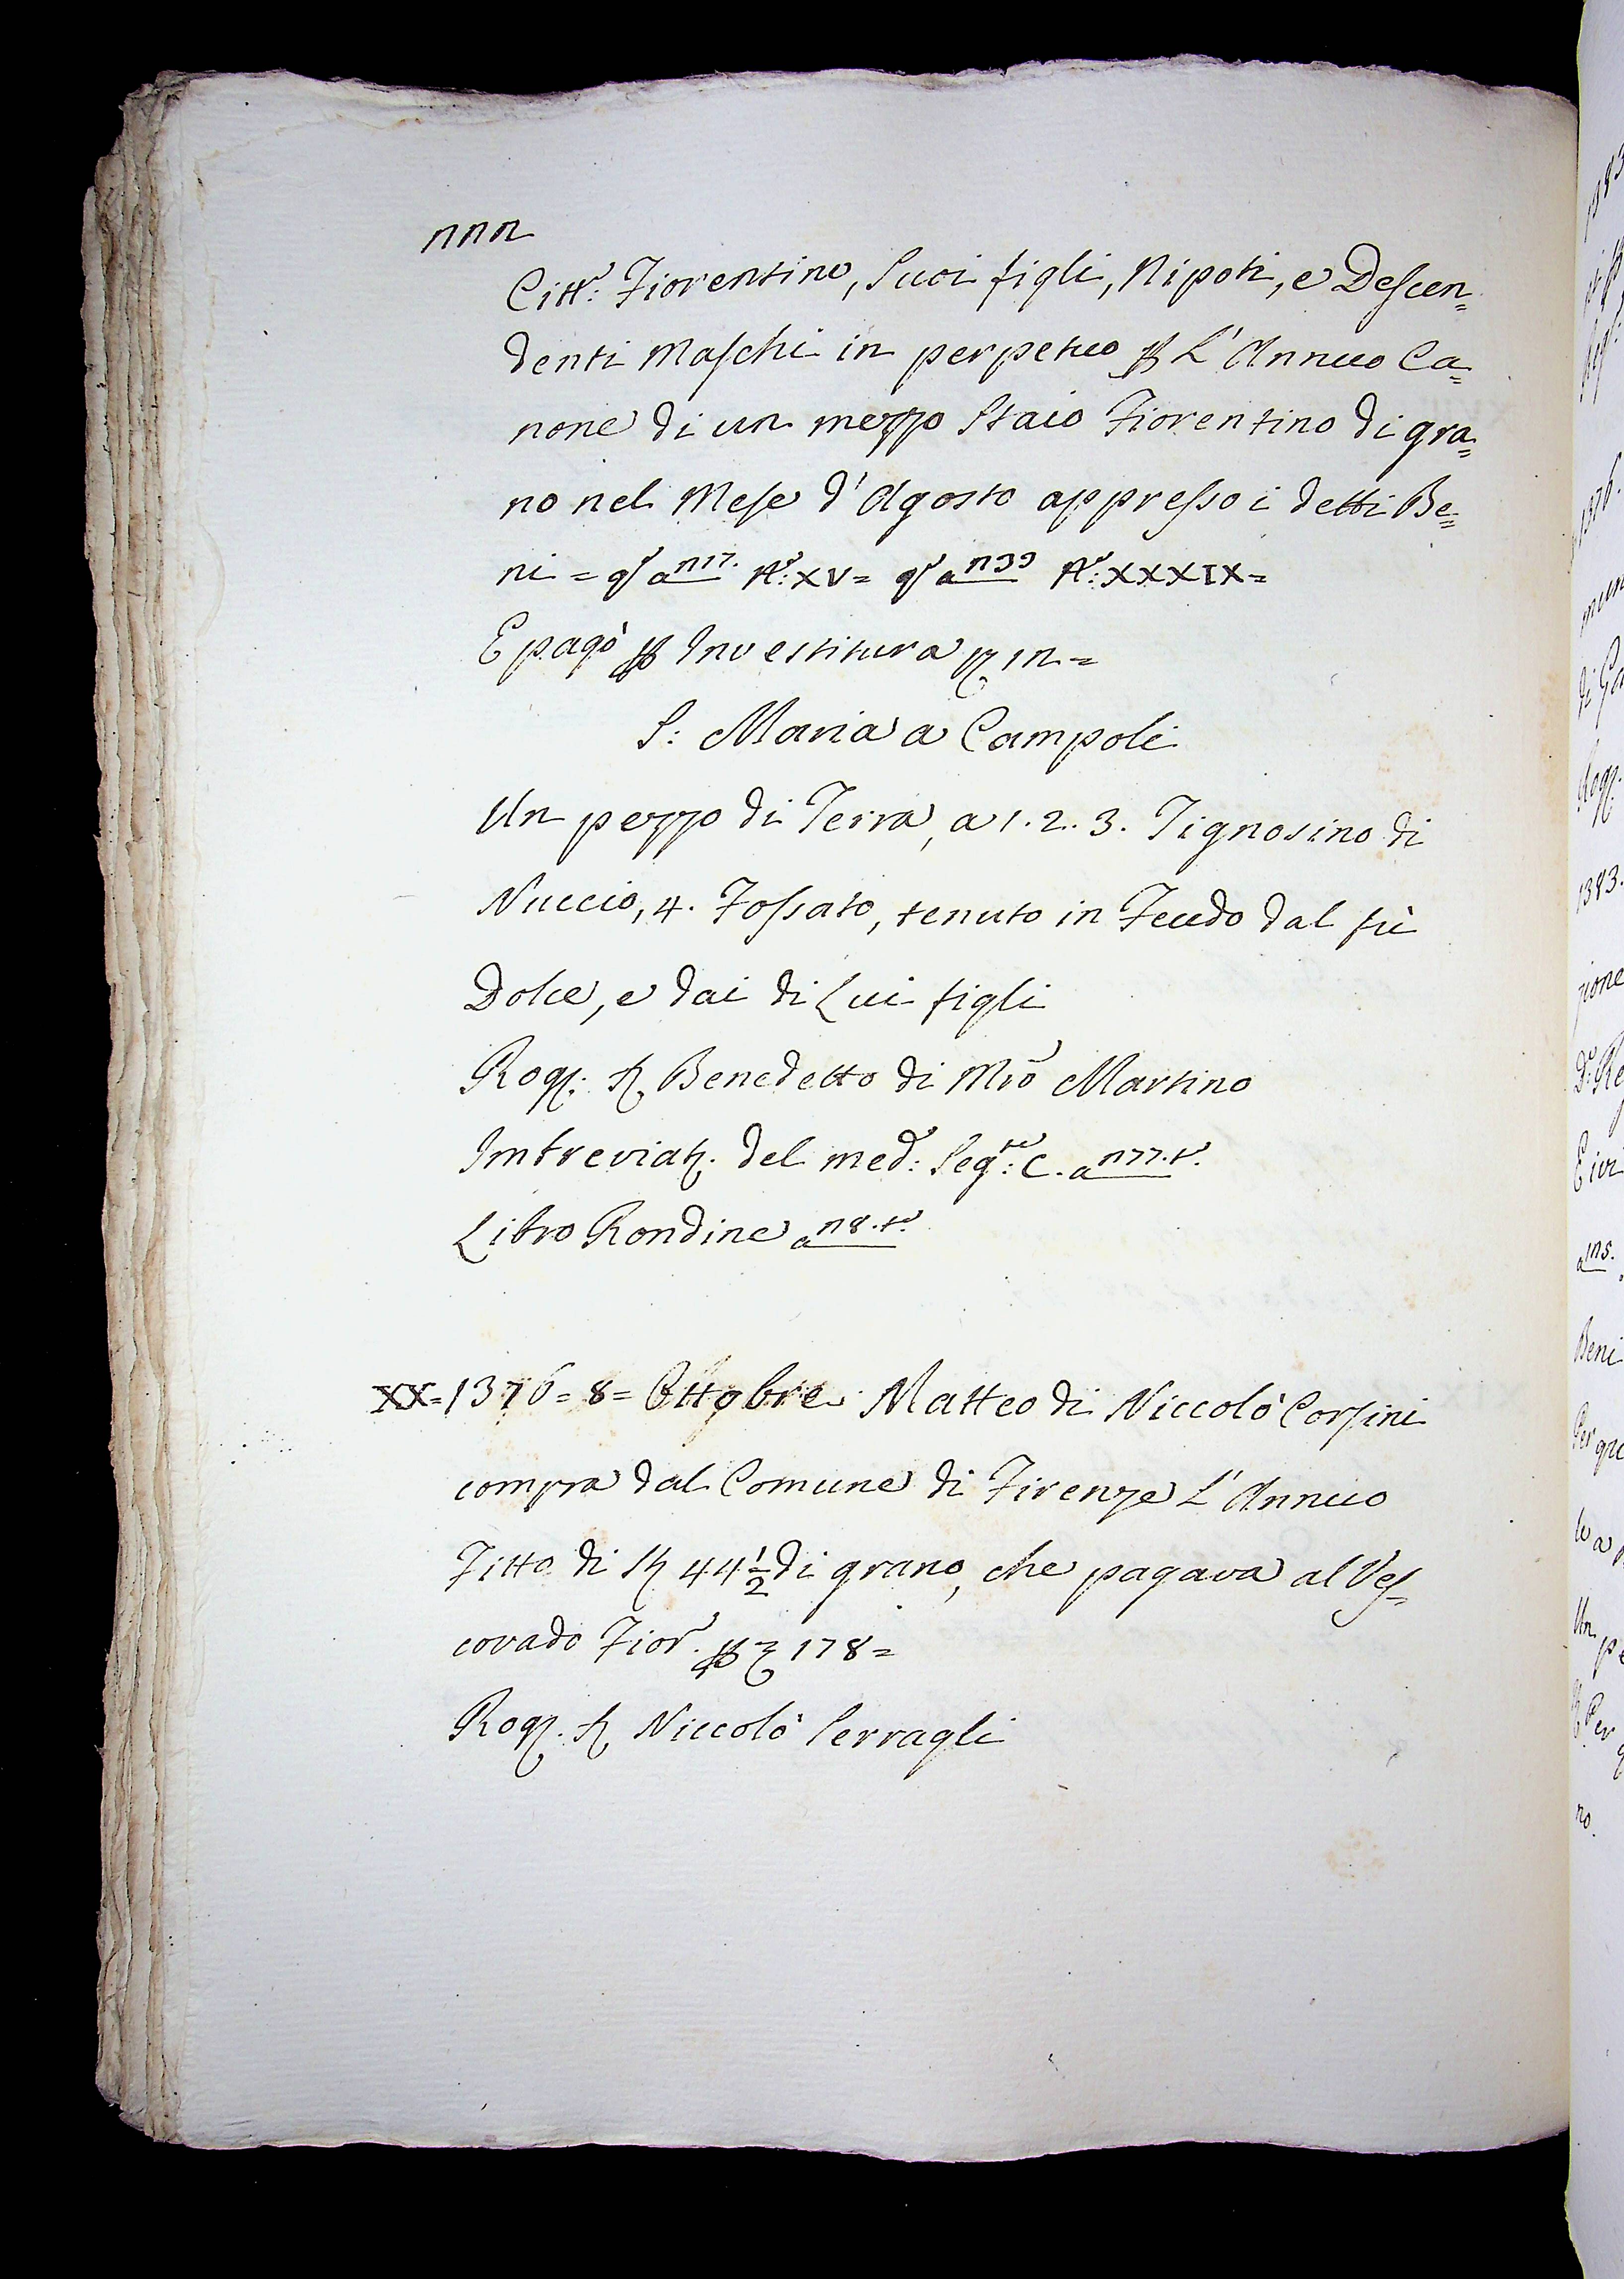 nnn
Citt.: Fiorentino, Suoi figli, Nipoti, e Descen=
denti Maschi in perpetuo p L'Annuo Ca=
none di un mezzo Staio Fiorentino di gra=
no nel Mese d'Agosto appresso i detti Be=
ni = q.r a n17. N.o: XV = q.r a n39 N.o: XXXIX =
E pagò p Investitura in =
S: Maria a Campoli
Un pezzo di Terra, a 1. 2. 3. Tignosino di
Nuccio, 4. Fossato, tenuto in Feudo dal fù
Dolce, e dai di Lui figli
Rog. S. Benedetto di Mro Martino
Imbreviaz. del med.: Seg.to: C. a n77. t.o
Libro Rondine a n8. t.o
XX = 1376 = 8 = Ottobre. Matteo di Niccolò Corsini
compra dal Comune di Firenze L'Annuo
Fitto di St 44 1/2 di grano, che pagava al Ves=
covado Fior. p 178 =
Rog. S. Niccolò Serragli